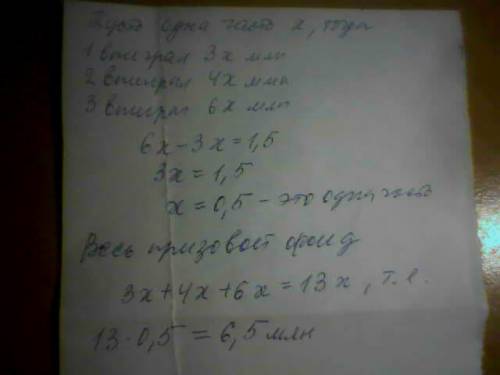 Пусть одна часть x, тогда
1 выиграл 3x млн
2 выиграл 4x млн
3 выиграл 6x млн
6x-3x=1,5
3x=1,5
x=0,5 - это одна часть
Весь призовой фонд
3x+4x+6x=13x, т.е.
13·0,5=6,5 млн